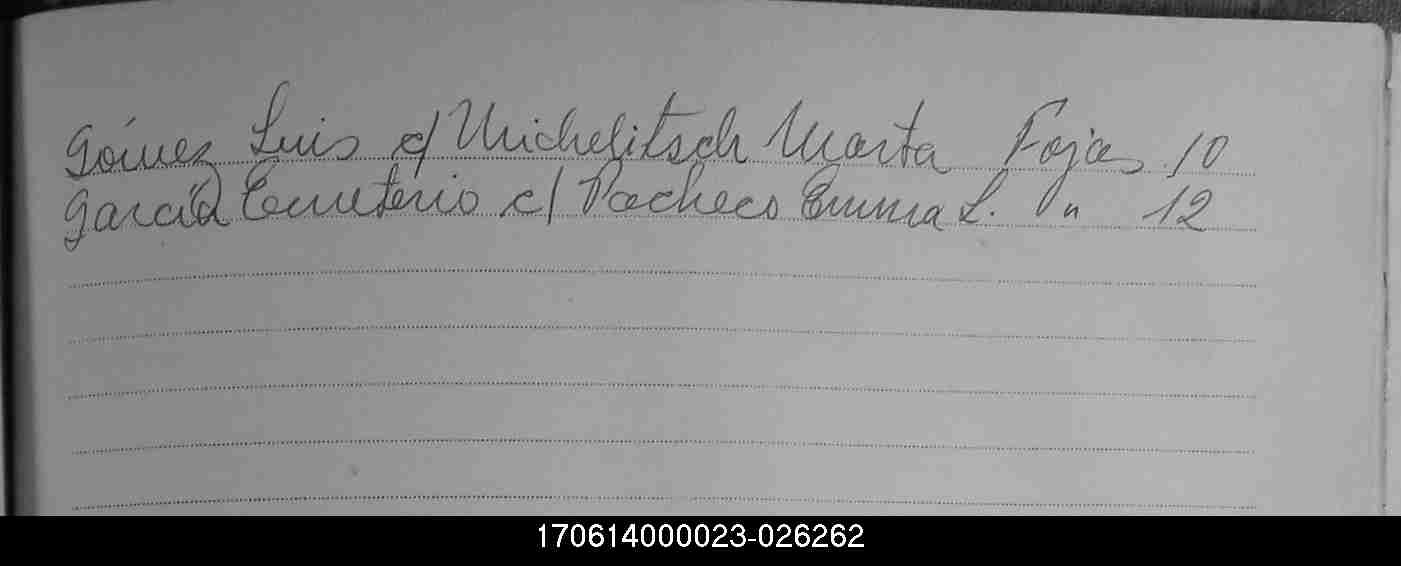 Gómez Luis c/ Michelitsch Marta Fojas 10
García Emeterio c/ Pacheco Emma L. " 12
170614000023-026262